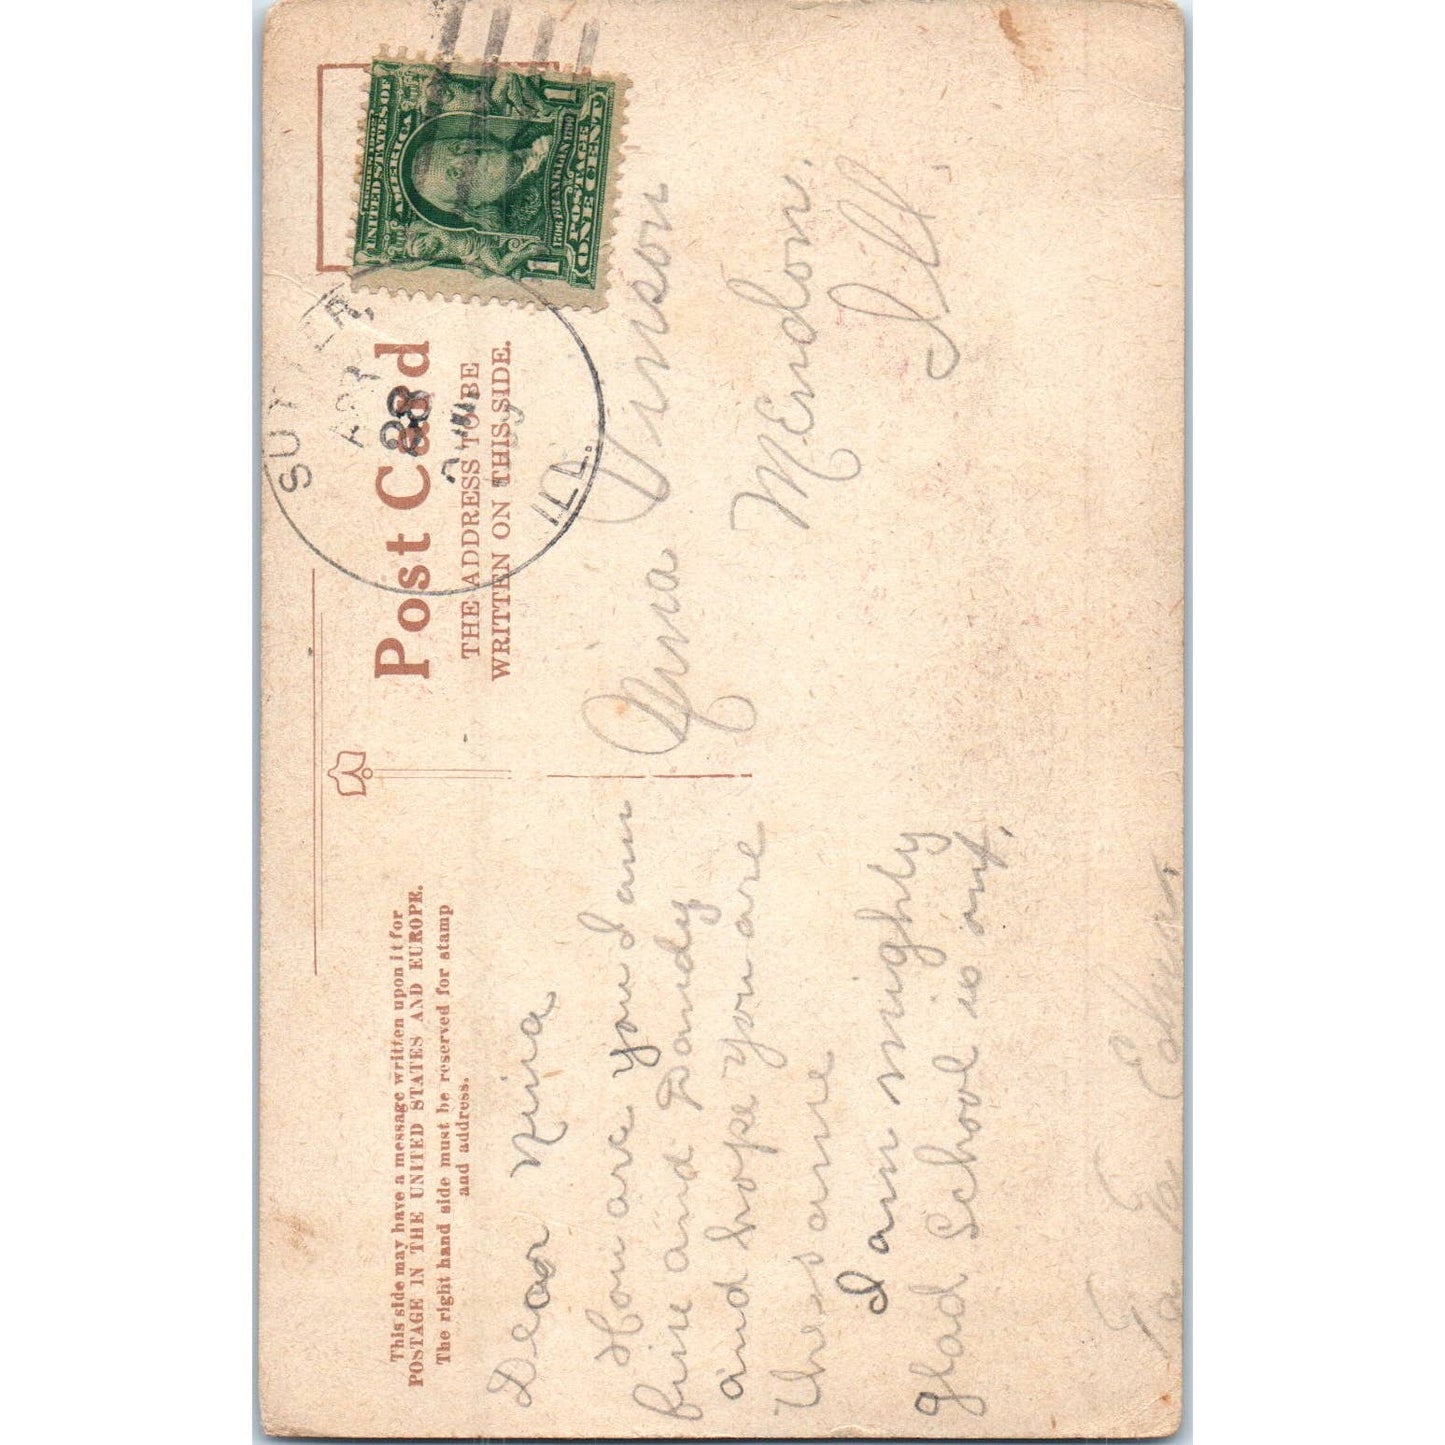 This side may have a message written upon it for
POSTAGE IN THE UNITED STATES AND EUROPE.
The right hand side must be reserved for stamp
and address.
Post Card
THE ADDRESS TO BE
WRITTEN ON THIS SIDE.
UNITED STATES OF
AMERICA
FRANKLIN
POSTAGE
ONE CENT
1 1
SUTTER,
APR
28
ILL.
Dear Nina
How are you I am
fine and Dandy
and hope you are
the same
I am mighty
glad School is out,
Ta Ta Edwin
Nina Vinson
Mendon.
Ill.